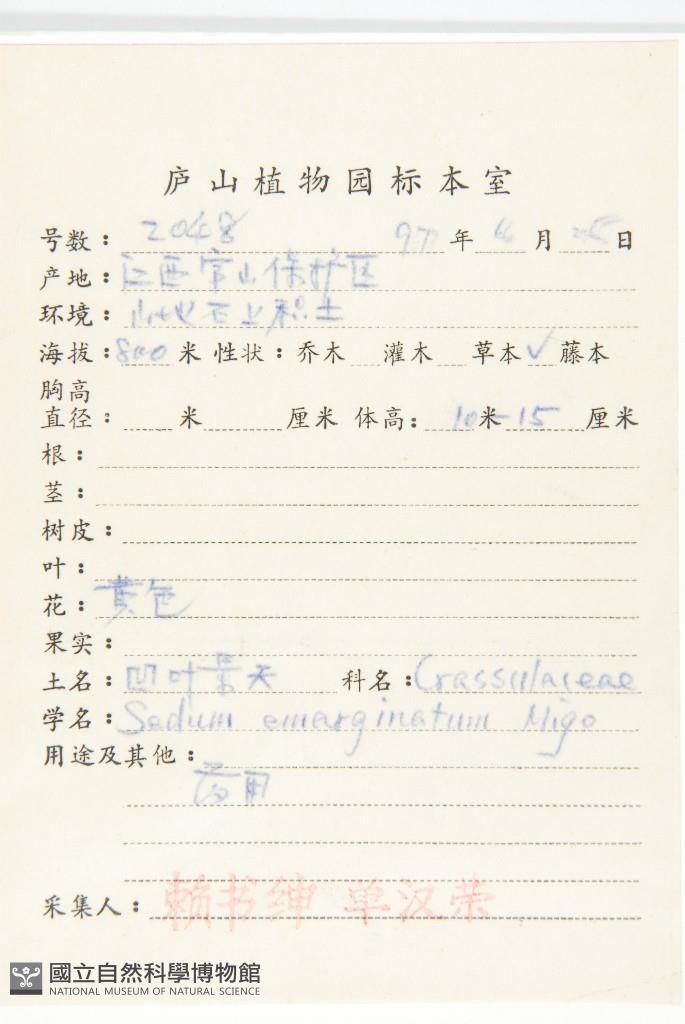 庐山植物园标本室
号数：2048 97年4月25日
产地：江西官山保护区
环境：山地石上积土
海拔：800米 性状：乔木 灌木 草本✓藤本
胸高
直径： 米 厘米 体高：10米-15厘米
根：
茎：
树皮：
叶：
花：黄色
果实：
土名：凹叶景天 科名：Crassulaceae
学名：Sedum emarginatum Migo
用途及其他：
药用
采集人：赖书绅 单汉荣
國立自然科學博物館
NATIONAL MUSEUM OF NATURAL SCIENCE